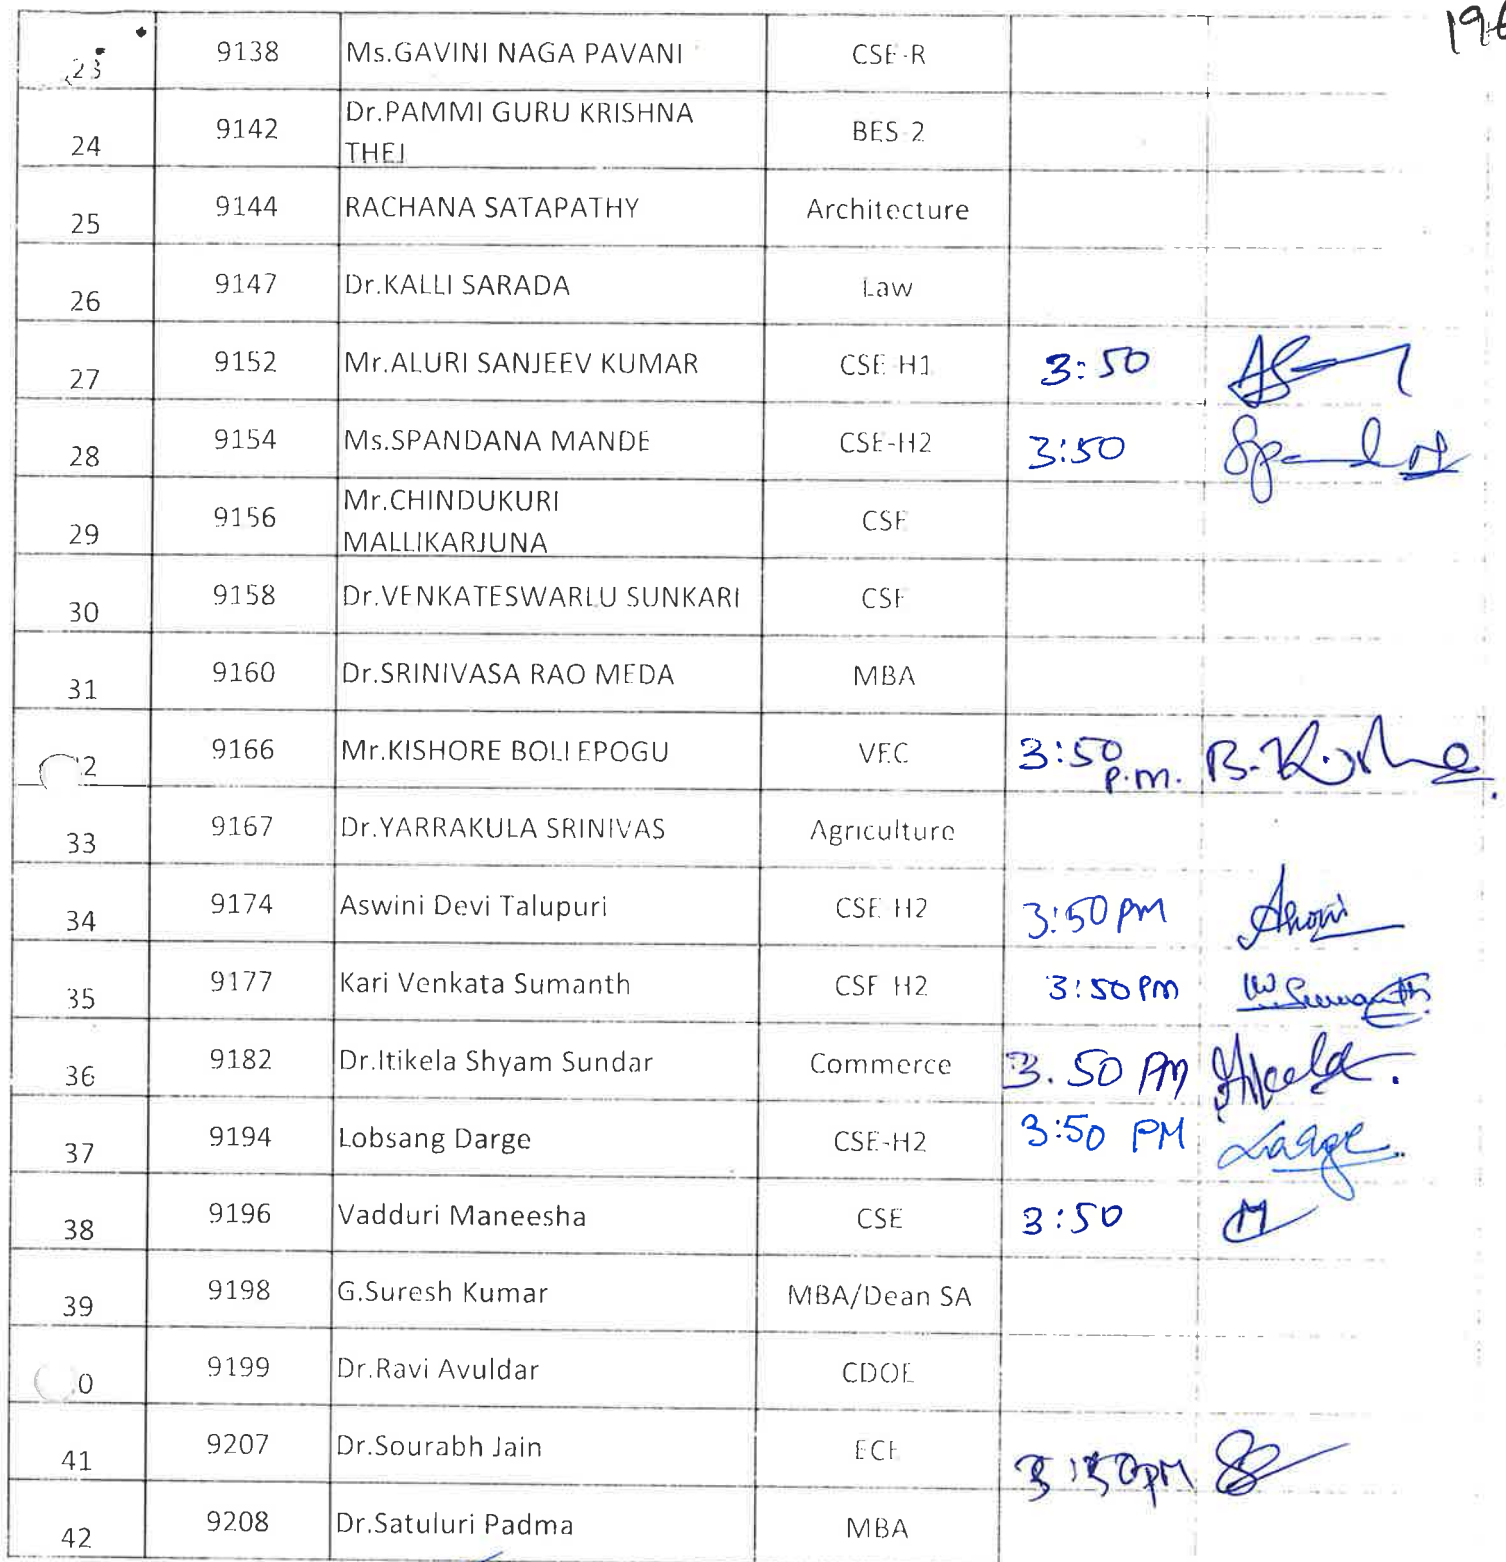 23 9138 Ms.GAVINI NAGA PAVANI CSE-R
24 9142 Dr.PAMMI GURU KRISHNA
THEJ BES-2
25 9144 RACHANA SATAPATHY Architecture
26 9147 Dr.KALLI SARADA Law
27 9152 Mr.ALURI SANJEEV KUMAR CSE-H1 3:50
28 9154 Ms.SPANDANA MANDE CSE-H2 3:50
29 9156 Mr.CHINDUKURI
MALLIKARJUNA CSE
30 9158 Dr.VENKATESWARLU SUNKARI CSE
31 9160 Dr.SRINIVASA RAO MEDA MBA
2 9166 Mr.KISHORE BOLLEPOGU VFC 3:50
P.m.
33 9167 Dr.YARRAKULA SRINIVAS Agriculture
34 9174 Aswini Devi Talupuri CSE H2 3:50 pm
35 9177 Kari Venkata Sumanth CSE H2 3:50 PM
36 9182 Dr.Itikela Shyam Sundar Commerce 3.50 PM
37 9194 Lobsang Darge CSE-H2 3:50 PM Darge
38 9196 Vadduri Maneesha CSE 3:50 M
39 9198 G.Suresh Kumar MBA/Dean SA
0 9199 Dr.Ravi Avuldar CDOE
41 9207 Dr.Sourabh Jain ECE 3:50pm
42 9208 Dr.Satuluri Padma MBA